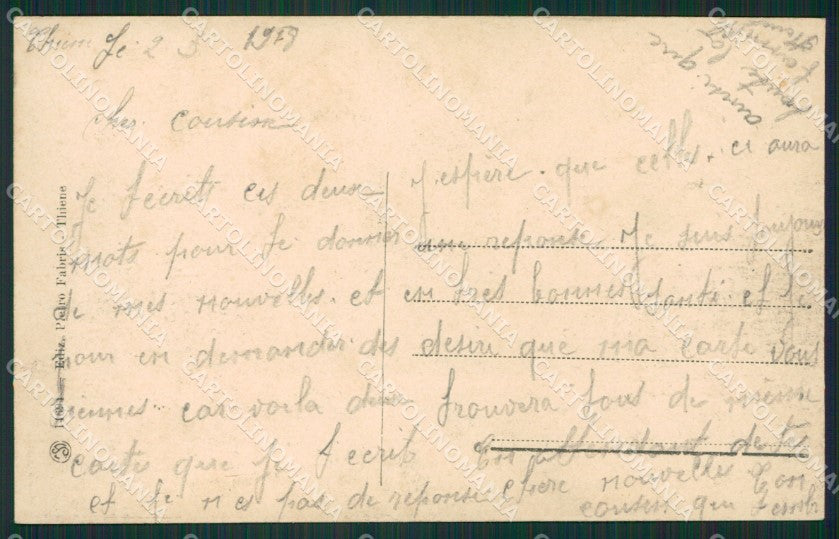 Le 2 3 1918
cher cousin
Je t'ecrit ces deux
mots pour te donner
de mes nouvelles. et
pour en demander des
tiennes. car voila deux
carte que je t ecrit
et je n es pas de reponse
J espère. que celle. ci aura
une reponse Je suis toujours
en très bonnes santé et je
desire que ma carte vous
trouvera tous de même
En attendant de tes
chère nouvelles Ton
cousin qui t emb
ainsi que
toute la
famille
Ediz. Pietro Fabris - Thiene
CARTOLINOMANIA